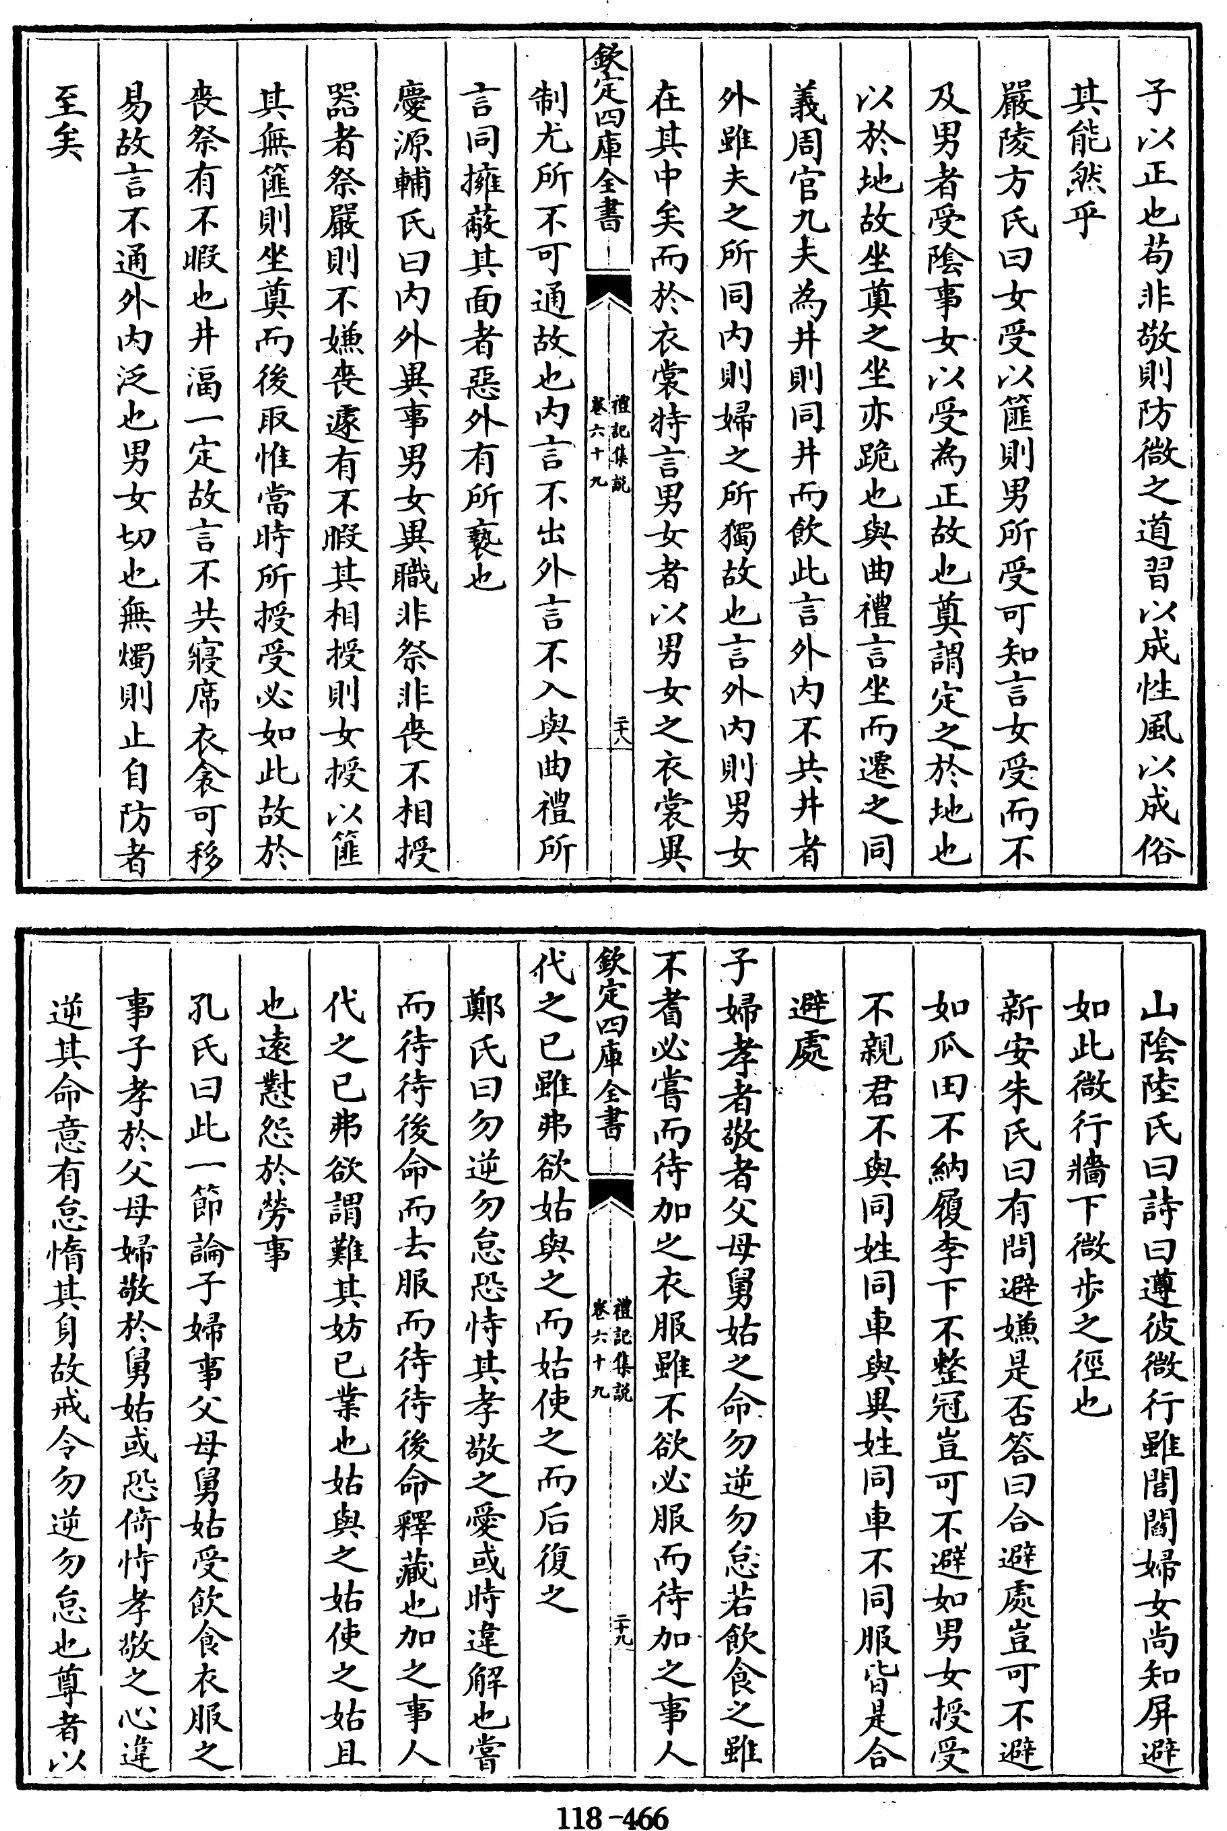 子以正也苟非敬則防微之道習以成性風以成俗
其能然乎
嚴陵方氏曰女受以篚則男所受可知言女受而不
及男者受陰事女以受為正故也奠謂定之於地也
以於地故坐奠之坐亦跪也與曲禮言坐而遷之同
義周官九夫為井則同井而飲此言外内不共井者
外雖夫之所同内則婦之所獨故也言外内則男女
在其中矣而於衣裳特言男女者以男女之衣裳異
欽定四庫全書
禮記集說
卷六十九
二十八
制尤所不可通故也内言不出外言不入與曲禮所
言同擁蔽其面者惡外有所褻也
慶源輔氏曰内外異事男女異職非祭非喪不相授
器者祭嚴則不嫌喪遽有不暇其相授則女授以篚
其無篚則坐奠而後取惟當時所授受必如此故於
喪祭有不暇也井湢一定故言不共寢席衣衾可移
易故言不通外内泛也男女切也無燭則止自防者
至矣
山陰陸氏曰詩曰遵彼微行雖閭閻婦女尚知屏避
如此微行牆下微步之徑也
新安朱氏曰有問避嫌是否答曰合避處豈可不避
如瓜田不納履李下不整冠豈可不避如男女授受
不親君不與同姓同車與異姓同車不同服皆是合
避處
子婦孝者敬者父母舅姑之命勿逆勿怠若飲食之雖
不耆必嘗而待加之衣服雖不欲必服而待加之事人
欽定四庫全書
禮記集說
卷六十九
二十九
代之已雖弗欲姑與之而姑使之而后復之
鄭氏曰勿逆勿怠恐恃其孝敬之愛或時違解也嘗
而待待後命而去服而待待後命釋藏也加之事人
代之已弗欲謂難其妨已業也姑與之姑使之姑且
也遠懟怨於勞事
孔氏曰此一節論子婦事父母舅姑受飲食衣服之
事子孝於父母婦敬於舅姑或恐倚恃孝敬之心違
逆其命意有怠惰其身故戒令勿逆勿怠也尊者以
118-466